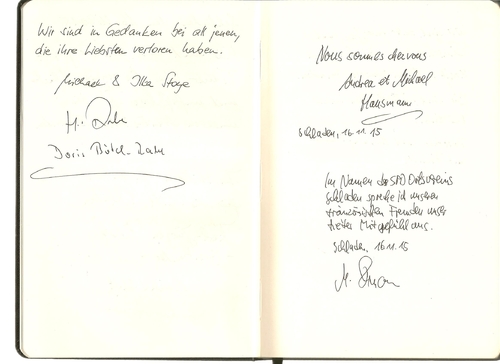 Wir sind in Gedanken bei all jenen,
die ihre Liebsten verloren haben.
Michael & Ilka
H.
Doris
Nous sommes
Andrea et Michael
Hausmann
Schladen, 16.11.15
Im Namen des SPD Ortsvereins
Schladen spreche ich unseren
französischen Freunden unser
tiefes Mitgefühl aus.
Schladen, 16.11.15
M.